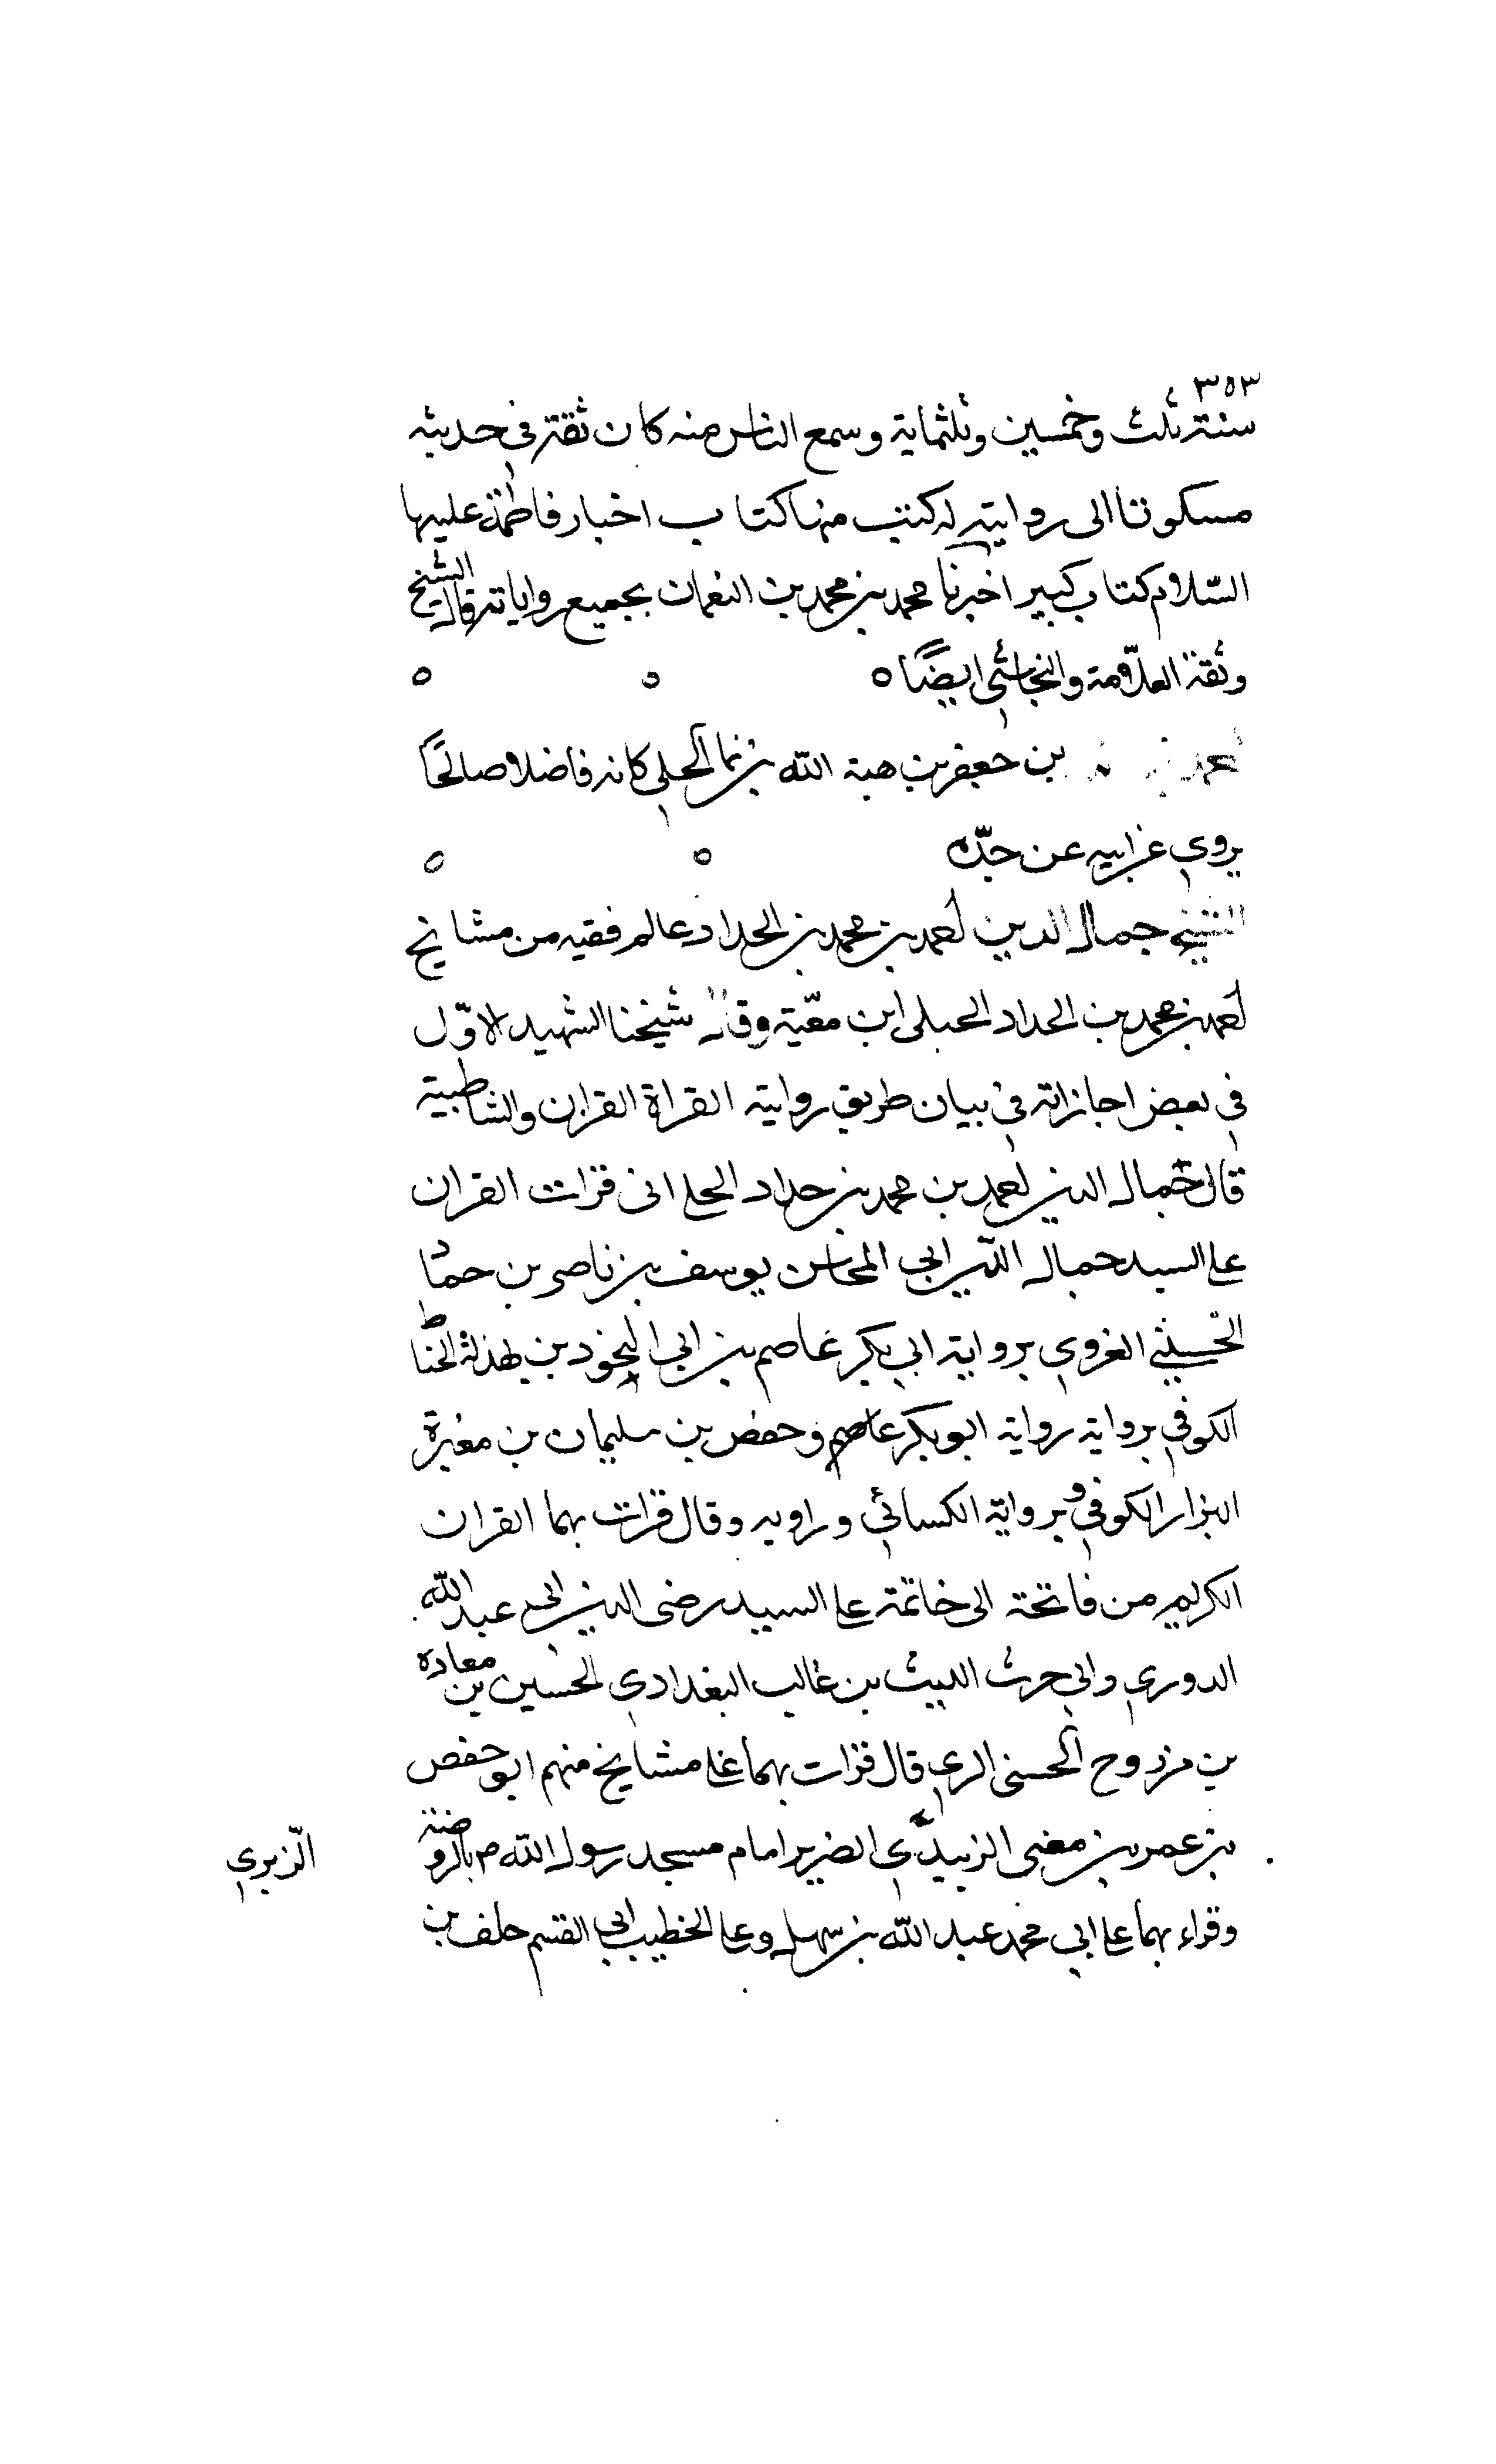 ٣٥٣
سنة ثلث وخمسين وثلثماية وسمع الناس منه كان ثقة في حديثه
مسكونا الى روايته له كتب منها كتاب اخبار فاطمة عليها
السّلام كتاب كبير اخبرنا محمد بن محمد بن النعمان بجميع رواياته قال الشيخ
وثقة العلّامة والنجاشي ايضًا ٥ ٥ ٥
بن جعفر بن هبة الله بن نما الحلي كان فاضلا صالحًا
يروي عن ابيه عن جدّه ٥ ٥
الشيخ جمال الدين احمد بن محمد بن الحداد عالم فقيه من مشايخ
احمد بن محمد بن الحداد الحبلى ابن معّية وقال شيخنا الشهيد الاوّل
في بعض اجازاته في بيان طريق رواية القراة القران والشاطبية
قال جمال الدين احمد بن محمد بن حداد الحلى انى قرات القران
على السيد جمال الدّين ابي المحاسن يوسف بن ناصر بن حمّاد
الحسيني الغروي برواية ابي بكر عاصم بن ابي النجود بن بهدلة الحنّاط
الكوفي برواية رواية ابو بكر عاصم وحفص بن سليمان بن مغيرة
البزار الكوفي وبرواية الكسائي وراويه وقال قرات بهما القران
الكريم من فاتحة الى خاتمة على السيد رضى الدين ابي عبد الله
الدوري وابي حرث الليث بن غالب البغدادي الحسين بن معاده
بن مزروح الحسنى الرى قال قرات بهما على مشايخ منهم ابو حفص
بن عمر بن معنى الزبيدّي الضرير امام مسجد رسول الله ص بالروضة
الّزبيرى
وقراء بهما على ابي محمد عبد الله بن سهل وعلى الخطيب ابي القسم خلف بن